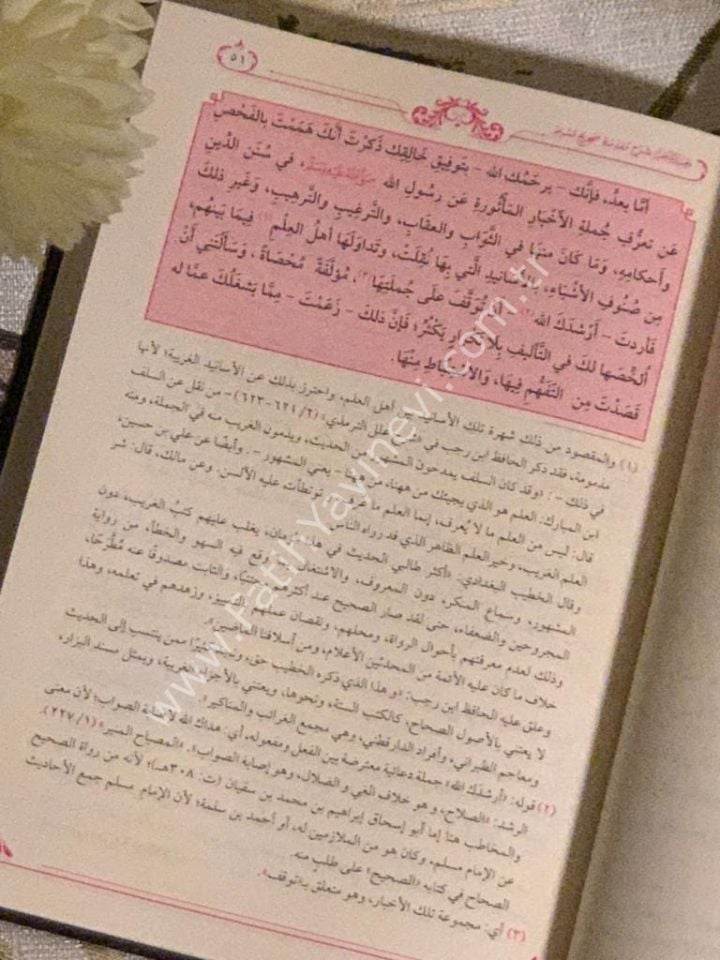 ٥١
أَمَّا بعدُ، فإنَّكَ – يرحَمُكَ الله – بِتَوفيقِ خَالِقِكَ ذَكَرْتَ أنَّكَ هَمَمْتَ بِالفَحْصِ
عَن تعرُّفِ جُملةِ الأخبَارِ المَأثُورةِ عَن رسُولِ الله ﷺ، في سُنَنِ الدِّينِ
وأحكامِهِ، وَمَا كَانَ مِنهَا في الثَّوَابِ والعقَابِ، والتَّرغِيبِ والتَّرهِيبِ، وَغَيرِ ذَلكَ
مِن صُنُوفِ الأشْيَاءِ، بِالأسَانِيدِ الَّتي بِهَا نُقِلَتْ، وَتَداوَلَهَا أهلُ العِلْمِ (١) فِيمَا بَينَهُم،
فَأَردتَ – أَرْشَدَكَ الله (٢) – أنْ تُوَقَّفَ عَلَى جُملَتِهَا (٣)، مُؤلَّفَةً مُحْصَاةً، وَسَألْتَنِي أَنْ
أُلَخِّصَها لكَ في التَّأليفِ بِلا تكرارٍ يَكْثُرُ؛ فَإنَّ ذَلكَ – زَعَمْتَ – مِمَّا يَشغَلُكَ عمَّا له
قَصَدْتَ مِن التَّفَهُّمِ فِيهَا، وَالاسْتِنْبَاطِ مِنْهَا.
(١) والمقصود من ذلك شهرة تلك الأسانيد بين أهل العلم، واحترز بذلك عن الأسانيد الغريبة؛ لأنها
مذمومة، فقد ذكر الحافظ ابن رجب في «شرح علل الترمذي» (٢/ ٦٢١-٦٢٣) – من نقل عن السلف
في ذلك –: «وقد كان السلف يمدحون المشهور من الحديث، ويذمون الغريب منه في الجملة، ومنه
ابن المبارك: العلم هو الذي يجيئك من ههنا، من ههنا – يعني المشهور –. وأيضًا عن علي بن حسين،
قال: ليس من العلم ما لا يُعرف، إنما العلم ما عُرف، توتطأت عليه الألسن. وعن مالك، قال: شر
العلم الغريب، وخير العلم الظاهر الذي قد رواه الناس
وقال الخطيب البغدادي: «أكثر طالبي الحديث في هذا الزمان، يغلب عليهم كتبُ الغريب، دون
المشهور، وسماع المنكر، دون المعروف، والاشتغال بما وقع فيه السهو والخطأ، من رواية
المجروحين والضعفاء، حتى لقد صار الصحيح عند أكثرهم مجتنبًا، والثابت مصدوفًا عنه مُطَّرَحًا،
وذلك لعدم معرفتهم بأحوال الرواة، ومحلهم، ونقصان علمهم بالتمييز، وزهدهم في تعلمه، وهذا
خلاف ما كان عليه الأئمة من المحدثين الأعلام، ومن أسلافنا الماضين».
وعلق عليه الحافظ ابن رجب: «وهذا الذي ذكره الخطيب حق، ونجد كثيرًا ممن ينتسب إلى الحديث
لا يعتني بالأصول الصحاح، كالكتب الستة، ونحوها، ويعتني بالأجزاء الغريبة، وبمثل مسند البزار،
ومعاجم الطبراني، وأفراد الدارقطني، وهي مجمع الغرائب والمناكير».
(٢) قوله: «أرشدك الله» جملة دعائية معترضة بين الفعل ومفعوله، أي: هداك الله لإصابة الصواب؛ لأن معنى
الرشد: «الصلاح، وهو خلاف الغي والضلال، وهو إصابة الصواب». «المصباح المنير» (١/ ٢٢٧).
والمخاطب هنا إما أبو إسحاق إبراهيم بن محمد بن سفيان (ت: ٣٠٨هـ)؛ لأنه من رواة الصحيح
عن الإمام مسلم، وكان هو من الملازمين له، أو أحمد بن سلمة؛ لأن الإمام مسلم جمع الأحاديث
الصحاح في كتابه «الصحيح» على طلب منه.
(٣) أي: مجموعة تلك الأخبار، وهو متعلق بـ«توقف».
www.FatihYayinevi.com.tr